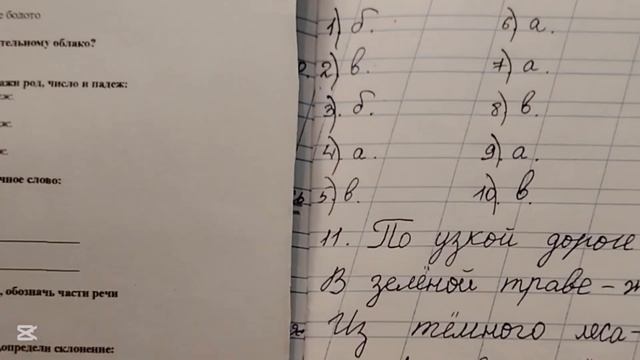 е болото
тельному облако?
ажи род, число и падеж:
ж.
ж.
ж.
чное слово:
, обозначь части речи
определи склонение:
1) б.
2) в.
3). б.
4) а.
5) в.
6) а.
7) а.
8) в.
9) а.
10). в.
11. По узкой дороге
В зелёной траве – ж
Из тёмного леса –